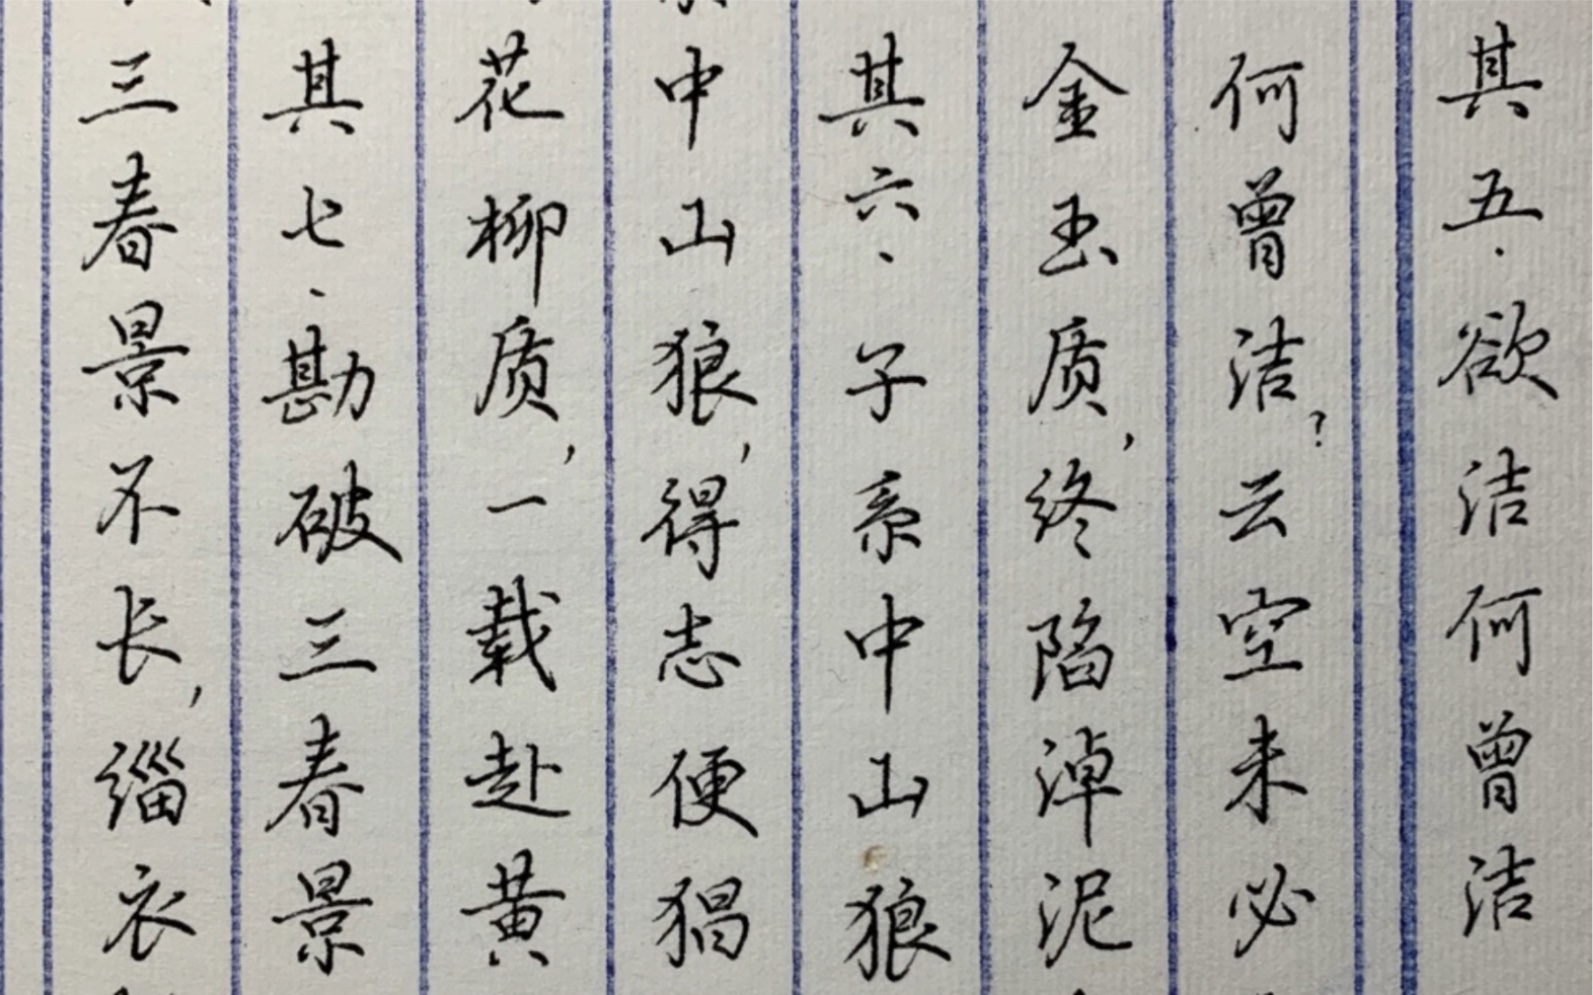 其五.欲洁何曾洁
何曾洁?云空未必
金玉质,终陷淖泥
其六、子系中山狼
中山狼,得志便猖
花柳质,一载赴黄
其七.勘破三春景
三春景不长,缁衣